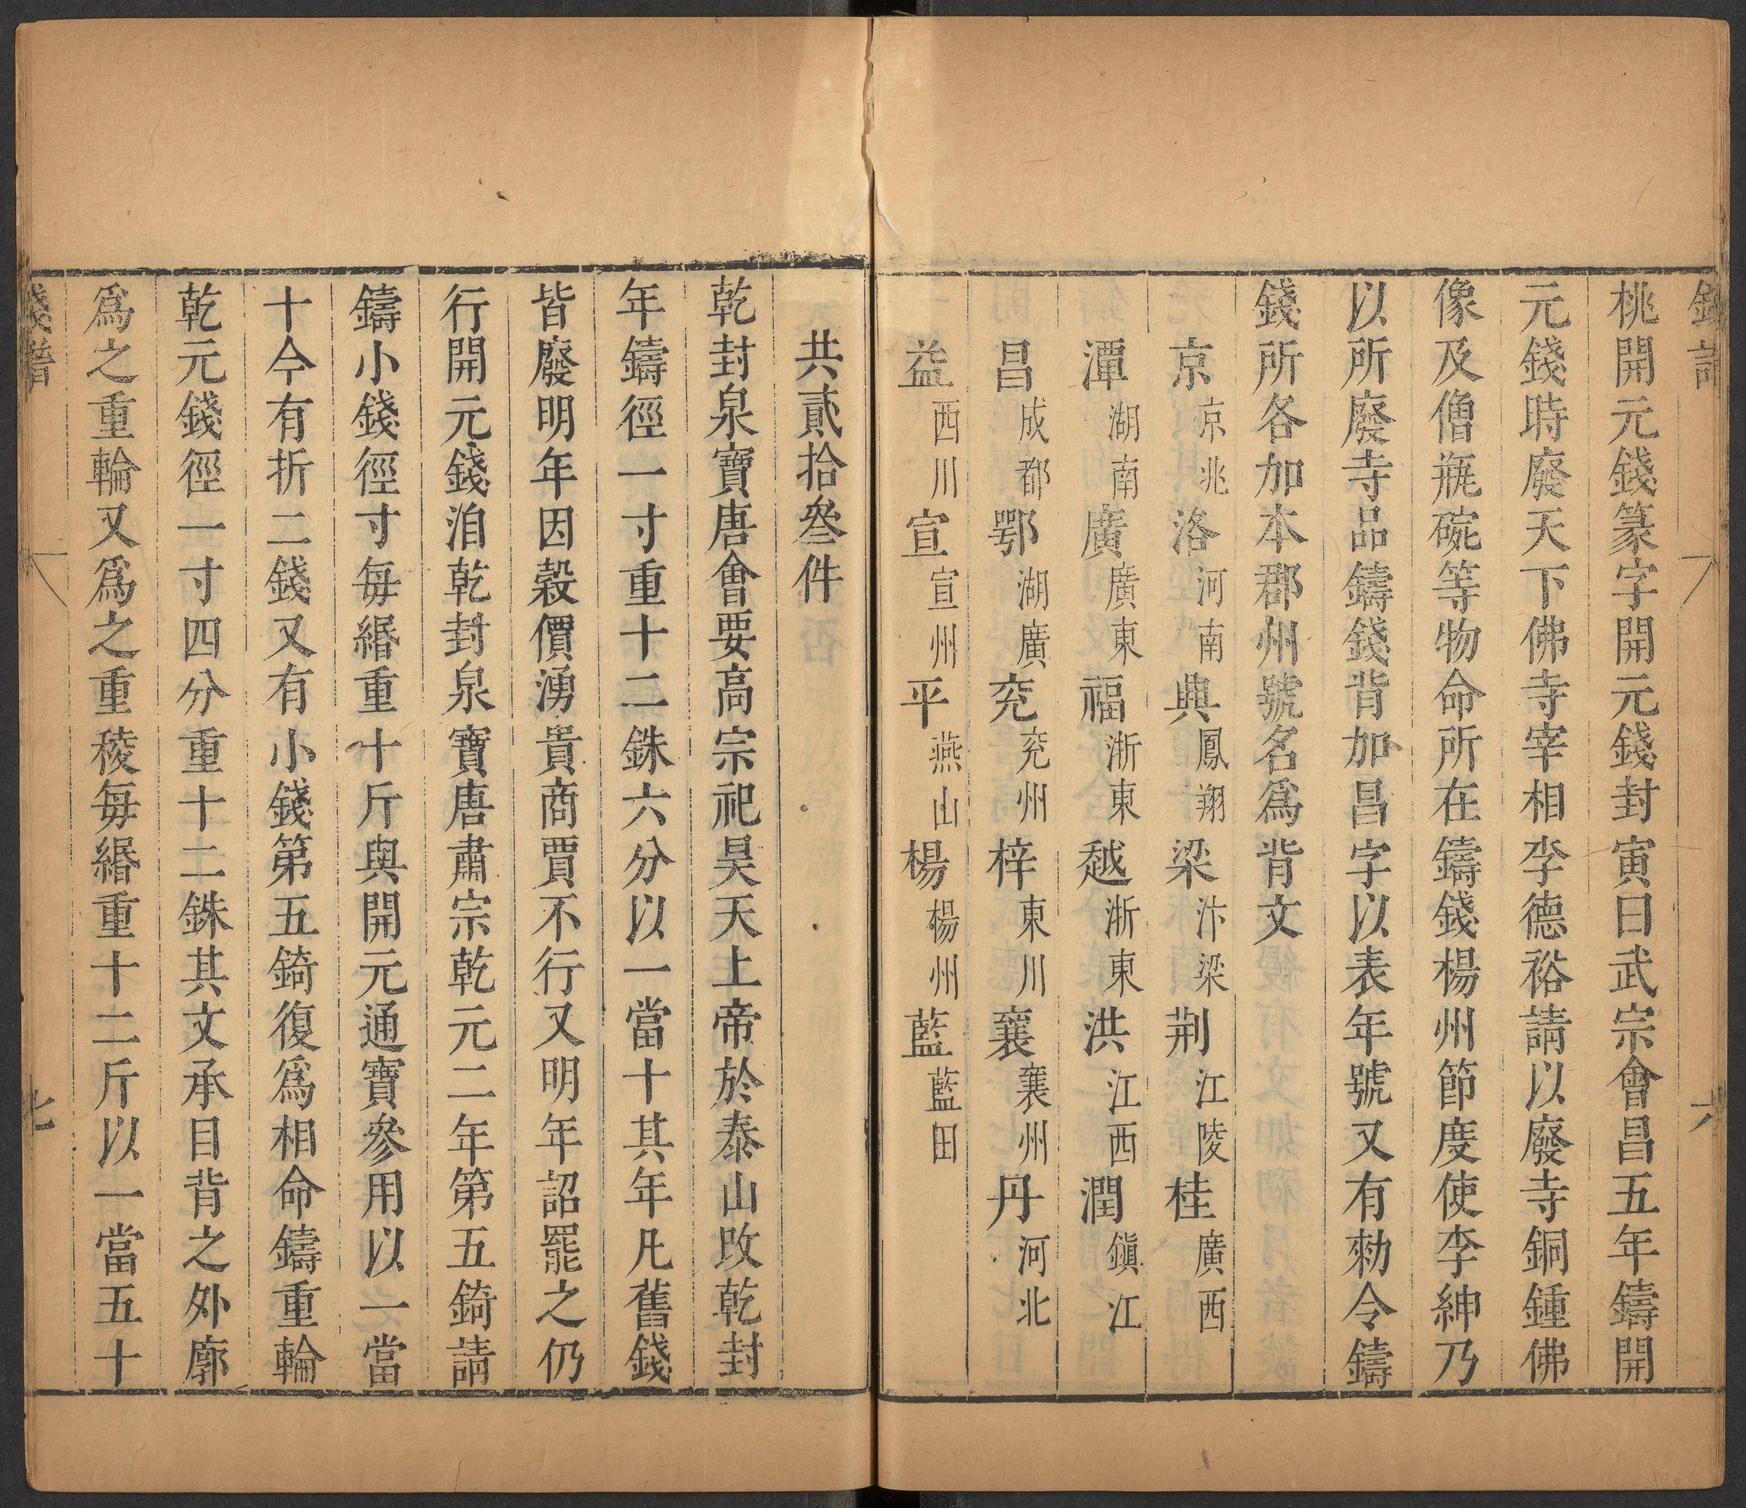 錢譜
六
桃開元錢篆字開元錢封寅曰武宗會昌五年鑄開
元錢時廢天下佛寺宰相李德裕請以廢寺銅鍾佛
像及僧瓶碗等物命所在鑄錢楊州節度使李紳乃
以所廢寺品鑄錢背加昌字以表年號又有勑令鑄
錢所各加本郡州號名爲背文
京京兆洛河南興鳳翔梁汴梁荆江陵桂廣西
潭湖南廣廣東福浙東越浙東洪江西潤鎮江
昌成都鄂湖廣兖兖州梓東川襄襄州丹河北
益西川宣宣州平燕山楊楊州藍藍田
共貳拾叄件
乾封泉寶唐會要高宗祀昊天上帝於泰山改乾封
年鑄徑一寸重十二銖六分以一當十其年凡舊錢
皆廢明年因榖價湧貴商賈不行又明年詔罷之仍
行開元錢洎乾封泉寶唐肅宗乾元二年第五錡請
鑄小錢徑寸每緡重十斤與開元通寶叅用以一當
十今有折二錢又有小錢第五錡復爲相命鑄重輪
乾元錢徑一寸四分重十二銖其文承目背之外廓
爲之重輪又爲之重稜每緡重十二斤以一當五十
錢譜
七